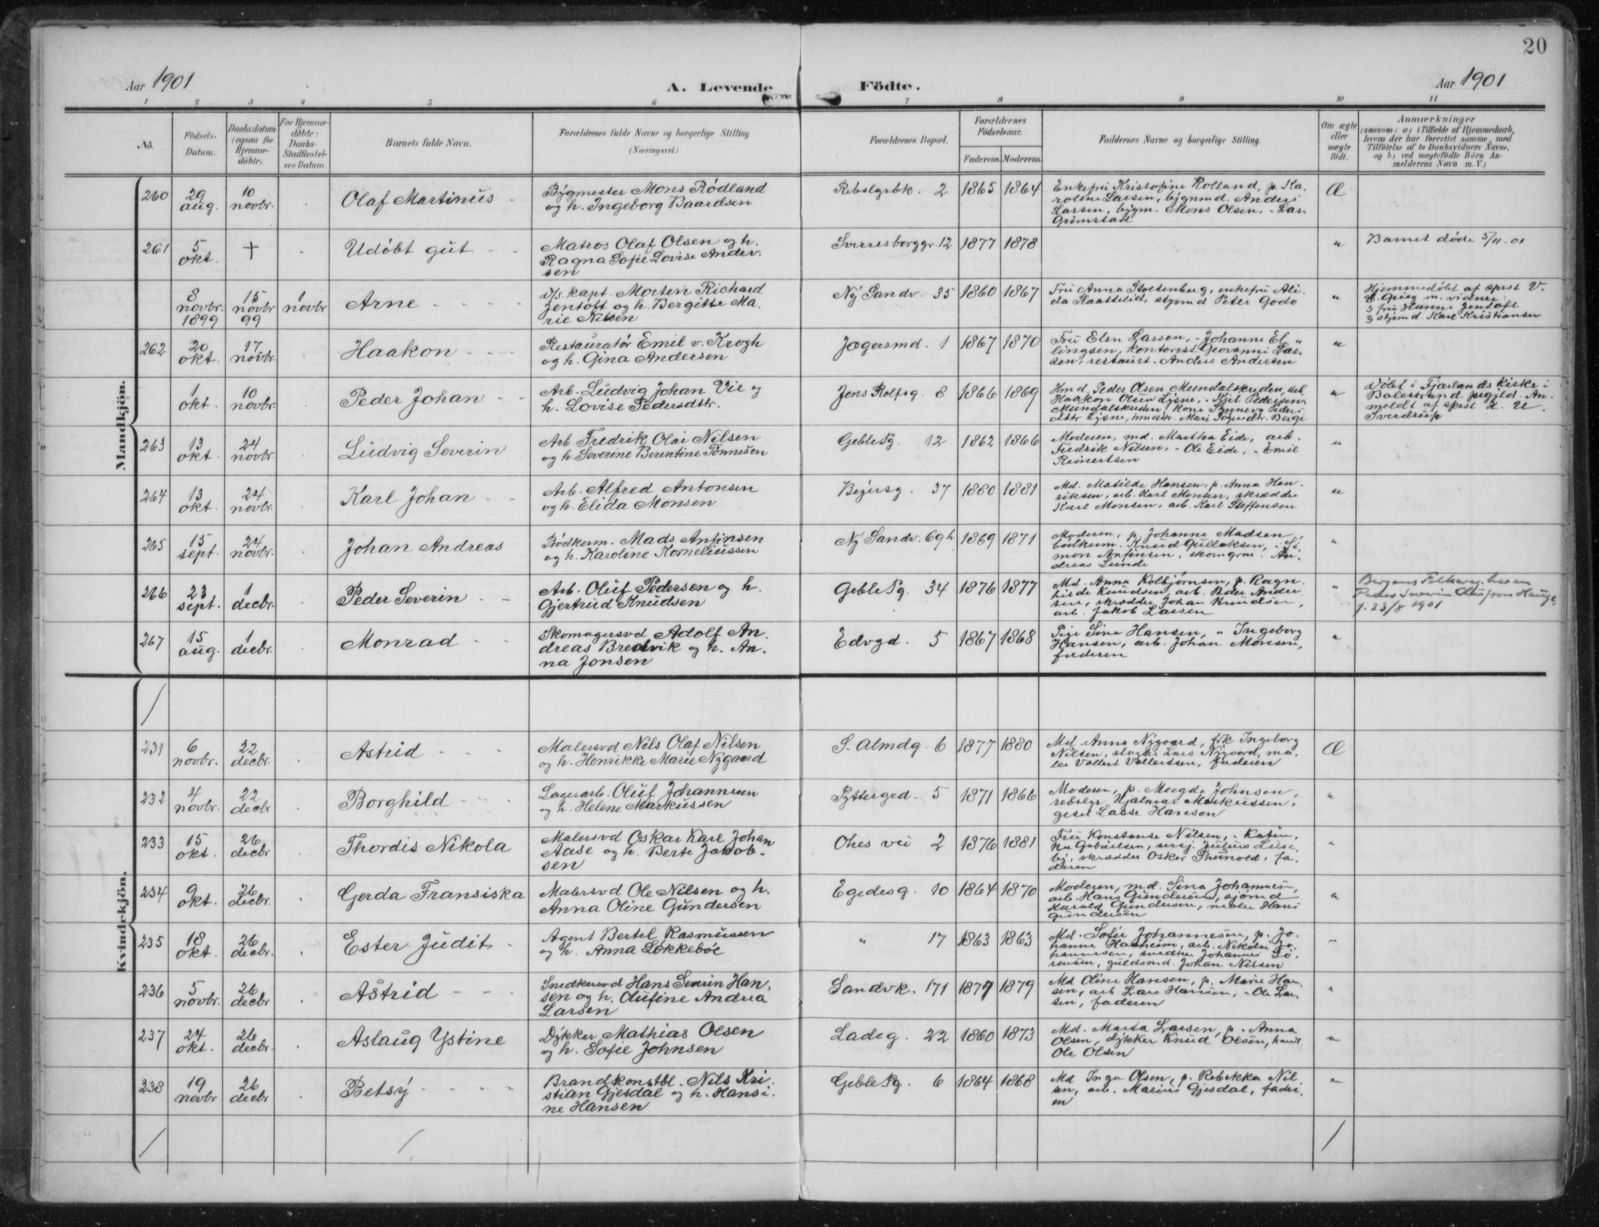 20
Aar 1901
A. Levende Födte.
Aar 1901
1 2 3 4 5 6 7 8 9 10 11
No.
Födsels-
Datum.
Daabsdatum
(ogsaa for
Hjemme-
döbte).
For Hjemme-
döbte:
Daabs-
Stadfæstel-
ses Datum.
Barnets fulde Navn.
Forældrenes fulde Navne og borgerlige Stilling.
(Næringsvei)
Forældrenes Bopæl.
Forældrenes
Födselsaar.
Faderens. Moderens.
Faddernes Navne og borgerlige Stilling.
Om ægte
eller
uægte
födt.
Anmærkninger
(saasom: a) i Tilfælde af Hjemmedaab,
hvem der har forrettet samme, med
Tilföielse af to Daabsvidners Navne,
og b) ved uægtefödte Börn An-
melderens Navn m. V.)
Mandkjön.
260
29 aug.
10 novbr.
Olaf Martinus
Bygmester Mons Rødland
og h. Ingeborg Baardsen
2
1865 1864
Enkefru Kristofine Rolland, p. Ka-
roline Larsen, bygmd. Anders
Larsen, bygm. Mons Olsen, - Lars
Grimstad
Æ
261
5 okt.
†
Udøbt gut
Matros Olaf Olsen og h.
Ragna Sofie Lovise Ander-
sen
Sverresborggr. 12
1877 1878
"
Barnet døde 5/11.01
8 novbr. 1899
15 novbr 99
1 novbr
Arne
d/s kapt. Morten Richard
Jentoft og h. Bergitte Ma-
rie Nilsen
Ny Sandv. 35
1860 1867
Fru Anna Stoltenberg, enkefru Ali-
da Kaatselid, styrmd Peter Godø
"
Hjemmedøbt af sprst V.
E. Grieg m. vidner
fru Hanna Jentoft
styrmd Karl Kristiansen
262
20 okt.
17 novbr.
Haakon
Restauratør Emil v. Krogh
og h. Gina Andersen
Jægersmd. 1
1867 1870
Fru Elen Larsen, - Johanne El-
lingsen, kontorist Geovanni Lar-
sen, restaurt. Anders Andersen
"
1 okt.
10 novbr.
Peder Johan
Arb. Ludvig Johan Vie og
h. Lovise Pedersdtr.
Jens Rolfsg. 8
1866 1869
"
Døbt i Fjærlands kirke i
Balestrand prgjld. An-
meldt af sprst
Sverdrup
263
13 okt.
24 novbr.
Ludvig Severin
Arb. Fredrik Olai Nilsen
og h. Severine Berentine Tønnesen
Geble Pg. 12
1862 1866
Moderen, md. Martha Eide, arb.
Fredrik Nilsen, - Ole Eide, - Emil
Reinertsen
"
264
13 okt.
24 novbr.
Karl Johan
Arb. Alfred Antonsen
og h. Elida Monsen
37
1880 1881
Md. Matilde Hansen, p. Anna Hen-
riksen, arb. Karl Monsen, skrædder
Karl Monsen, arb. Karl Steffensen
"
265
15 sept.
24 novbr.
Johan Andreas
Bødkerm. Mads Anfinsen
og h. Karoline Korneliussen
Ny Sandv. 69 b
1869 1871
Moderen, p. Johanne Madsen,
bødkerm. Knud Gullaksen, - Si-
mon Anfinsen, skomgrm. An-
dreas Lunde
"
266
23 sept.
1 decbr.
Peder Severin
Arb. Oluf Pedersen og h.
Gjertrud Knudsen
Geble Pg. 34
1876 1877
Md. Anna Kolbjørnsen, p. Ragn-
hilde Knudsen, arb. Peder Ander-
sen, skrædder Johan Knudsen,
arb. Jakob Larsen
"
Bergens Folkereg. har en
Peder Severin Olufson Hauge
f. 23/8 1901
267
15 aug.
1 decbr.
Monrad
Skomagersvd Adolf An-
dreas Bredvik og h. An-
na Jonsen
Edvgd. 5
1867 1868
Pige Sina Hansen, " Ingeborg
Hansen, arb. Johan Monsen,
faderen
"
Kvindekjön.
231
6 novbr.
22 decbr.
Astrid
Malersvd Nils Olaf Nilsen
og h. Henrikke Marie Nygaard
S. Almdg. 6
1877 1880
Md. Anna Nygaard, frk Ingeborg
Nilsen, Lars Nygaard, ma-
ler Vollert Vollertsen, faderen
Æ
232
4 novbr.
22 decbr.
Borghild
Lagerarb. Oluf Johannesen
og h. Helene Markussen
5
1871 1866
Moderen, p. Magda Johnsen,
rebslgr. Hjalmar Markussen,
gesel Lasse Hansen
"
233
15 okt.
26 decbr
Thordis Nikola
Malersvd Oskar Karl Johan
Aase og h. Berte Jakob-
sen
Ohes vei 2
1876 1881
Fru Konstanse Nilsen, - Katin-
ka Gabrielsen,
skrædder Oskar Thunold, fa-
deren
"
234
9 okt.
26 decbr.
Gerda Fransiska
Malersvd Ole Nilsen og h.
Anna Oline Gundersen
Egedesg. 10
1864 1870
Moderen, md. Sina Johannesn,
arb. Hans Gundersen, sjømd
Harald Gundersen, maler Hans
Gundersen
"
235
18 okt.
26 decbr.
Ester Judit
Agent Bertel Rasmussen
og h. Anna Løkkebøe
" 17
1863 1863
Md. Sofie Johannesen, p. Jo-
hanne Hasheim, arb. Nikolai Jo-
hannesen, snedker Johannes Sø-
rensen, guldsmd. Johan Nilsen
"
236
5 novbr.
26 decbr
Astrid
Snedkersvd Hans Severin Han-
sen og h. Olufine Andrea
Larsen
Sandvk. 171
1877 1879
Md Oline Hansen, p. Marie Han-
sen, arb Lars Hansen, - Ole Lar-
sen, faderen
"
237
24 okt.
26 decbr.
Aslaug Ystine
Dykker Mathias Olsen
og h. Sofie Johnsen
Ladeg. 22
1860 1873
Md. Marta Larsen, p. Anna
Olsen, dykker Knud Olsen, handl
Ole Olsen
"
238
19 novbr
26 decbr
Betsy
Brandkonstbl. Nils Kri-
stian Gjesdal og h. Hansi-
ne Hansen
Geble Pg. 6
1864 1868
Md Inga Olsen, p. Rebekka Nil-
sen, arb. Marius Gjesdal, fader-
en
"